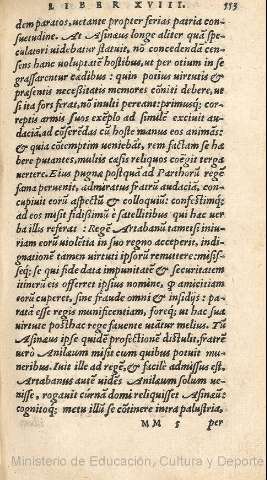 LIBER XVIII. 553
dem paratos, uetante propter ferias patria con-
suetudine. At Asinæus longe aliter quã spe-
culatori uidebatur statuit, nõ concedendã cen-
sens hanc uoluptatē hostibus, ut per otium in se
grassarentur cædibus: quin potius uirtutis &
præsentis necessitatis memores cõniti debere, ut
si ita fors ferat, nõ inulti pereant: primusq; cor-
reptis armis suos exēplo ad similē exciuit au-
daciã, ad cõserēdas cū hoste manus eos animãs:
& quia cõtemptim ueniebãt, rem factam se ha
bere putantes, multis cæsis reliquos coëgit terga
uertere. Eius pugnæ postquã ad Parthorū regē
fama peruenit, admiratus fratrū audaciã, con-
cupiuit eorū aspectū & colloquiū: confestimq;
ad eos misit fidissimū è satellitibus qui hæc uer
ba illis referat: Regē Artabanū tametsi iniu-
riam eorū uiolētia in suo regno acceperit, indi-
gnationē tamen uirtuti ipsorū remittere: misis-
seq; se qui fide data impunitatē & securitatem
itineris eis offerret ipsius nomine, q̃ amicitiam
eorū cuperet, sine fraude omni & insidijs: pa-
rata esse regis munificentiam, foreq; ut hac sua
uirtute posthac rege fauente utãtur melius. Tū
Asinæus ipse quidē profectionē distulit, fratrē
uero Anilæum misit cum quibus potuit mu-
neribus. Iuit ille ad regē, & facile admissus est.
Artabanus autē uidēs Anilæum solum ue-
nisse, rogauit curnã domi reliquisset Asinæū:
cognitoq; metu illū se cõtinere intra palustria,
MM 5 per
Ministerio de Educación, Cultura y Deporte